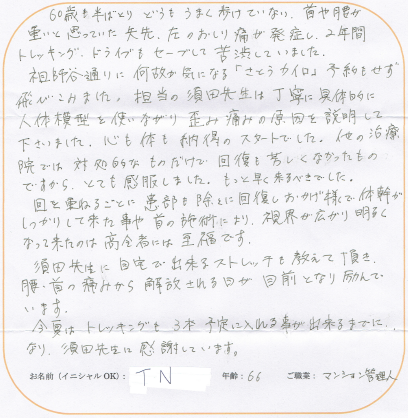 60歳も半ばとり どうも うまく歩けていない、首や腰が
重いと思っていた矢先、左のおしり痛が発症し、2年間
トレッキング、ドライブもセーブして苦渋していました。
祖師谷通りに何故か気になる「さとうカイロ」予約もせず
飛びこみました。担当の須田先生は丁寧に具体的に
人体模型を使いながり歪み痛みの原因を説明して
下さいました。心も体も納得のスタートでした。他の治療
院では対処的なものだけで回復も芳しくなかったもの
ですから、とても感服しました。もっと早く来るべきでした。
回を重ねるごとに患部も除々に回復しおかげ様で体幹が
しっかりして来た事や首の施術により、視界が広がり明るく
なって来たのは高令者には至福です。
須田先生に自宅で出来るストレッチも教えて頂き、
腰・首の痛みから解放される日が目前となり励んで
います。
今夏はトレッキングも3本予定に入れる事が出来るまでに
なり、須田先生に感謝しています。
お名前（イニシャルOK）： TN 年齢：66 ご職業：マンション管理人